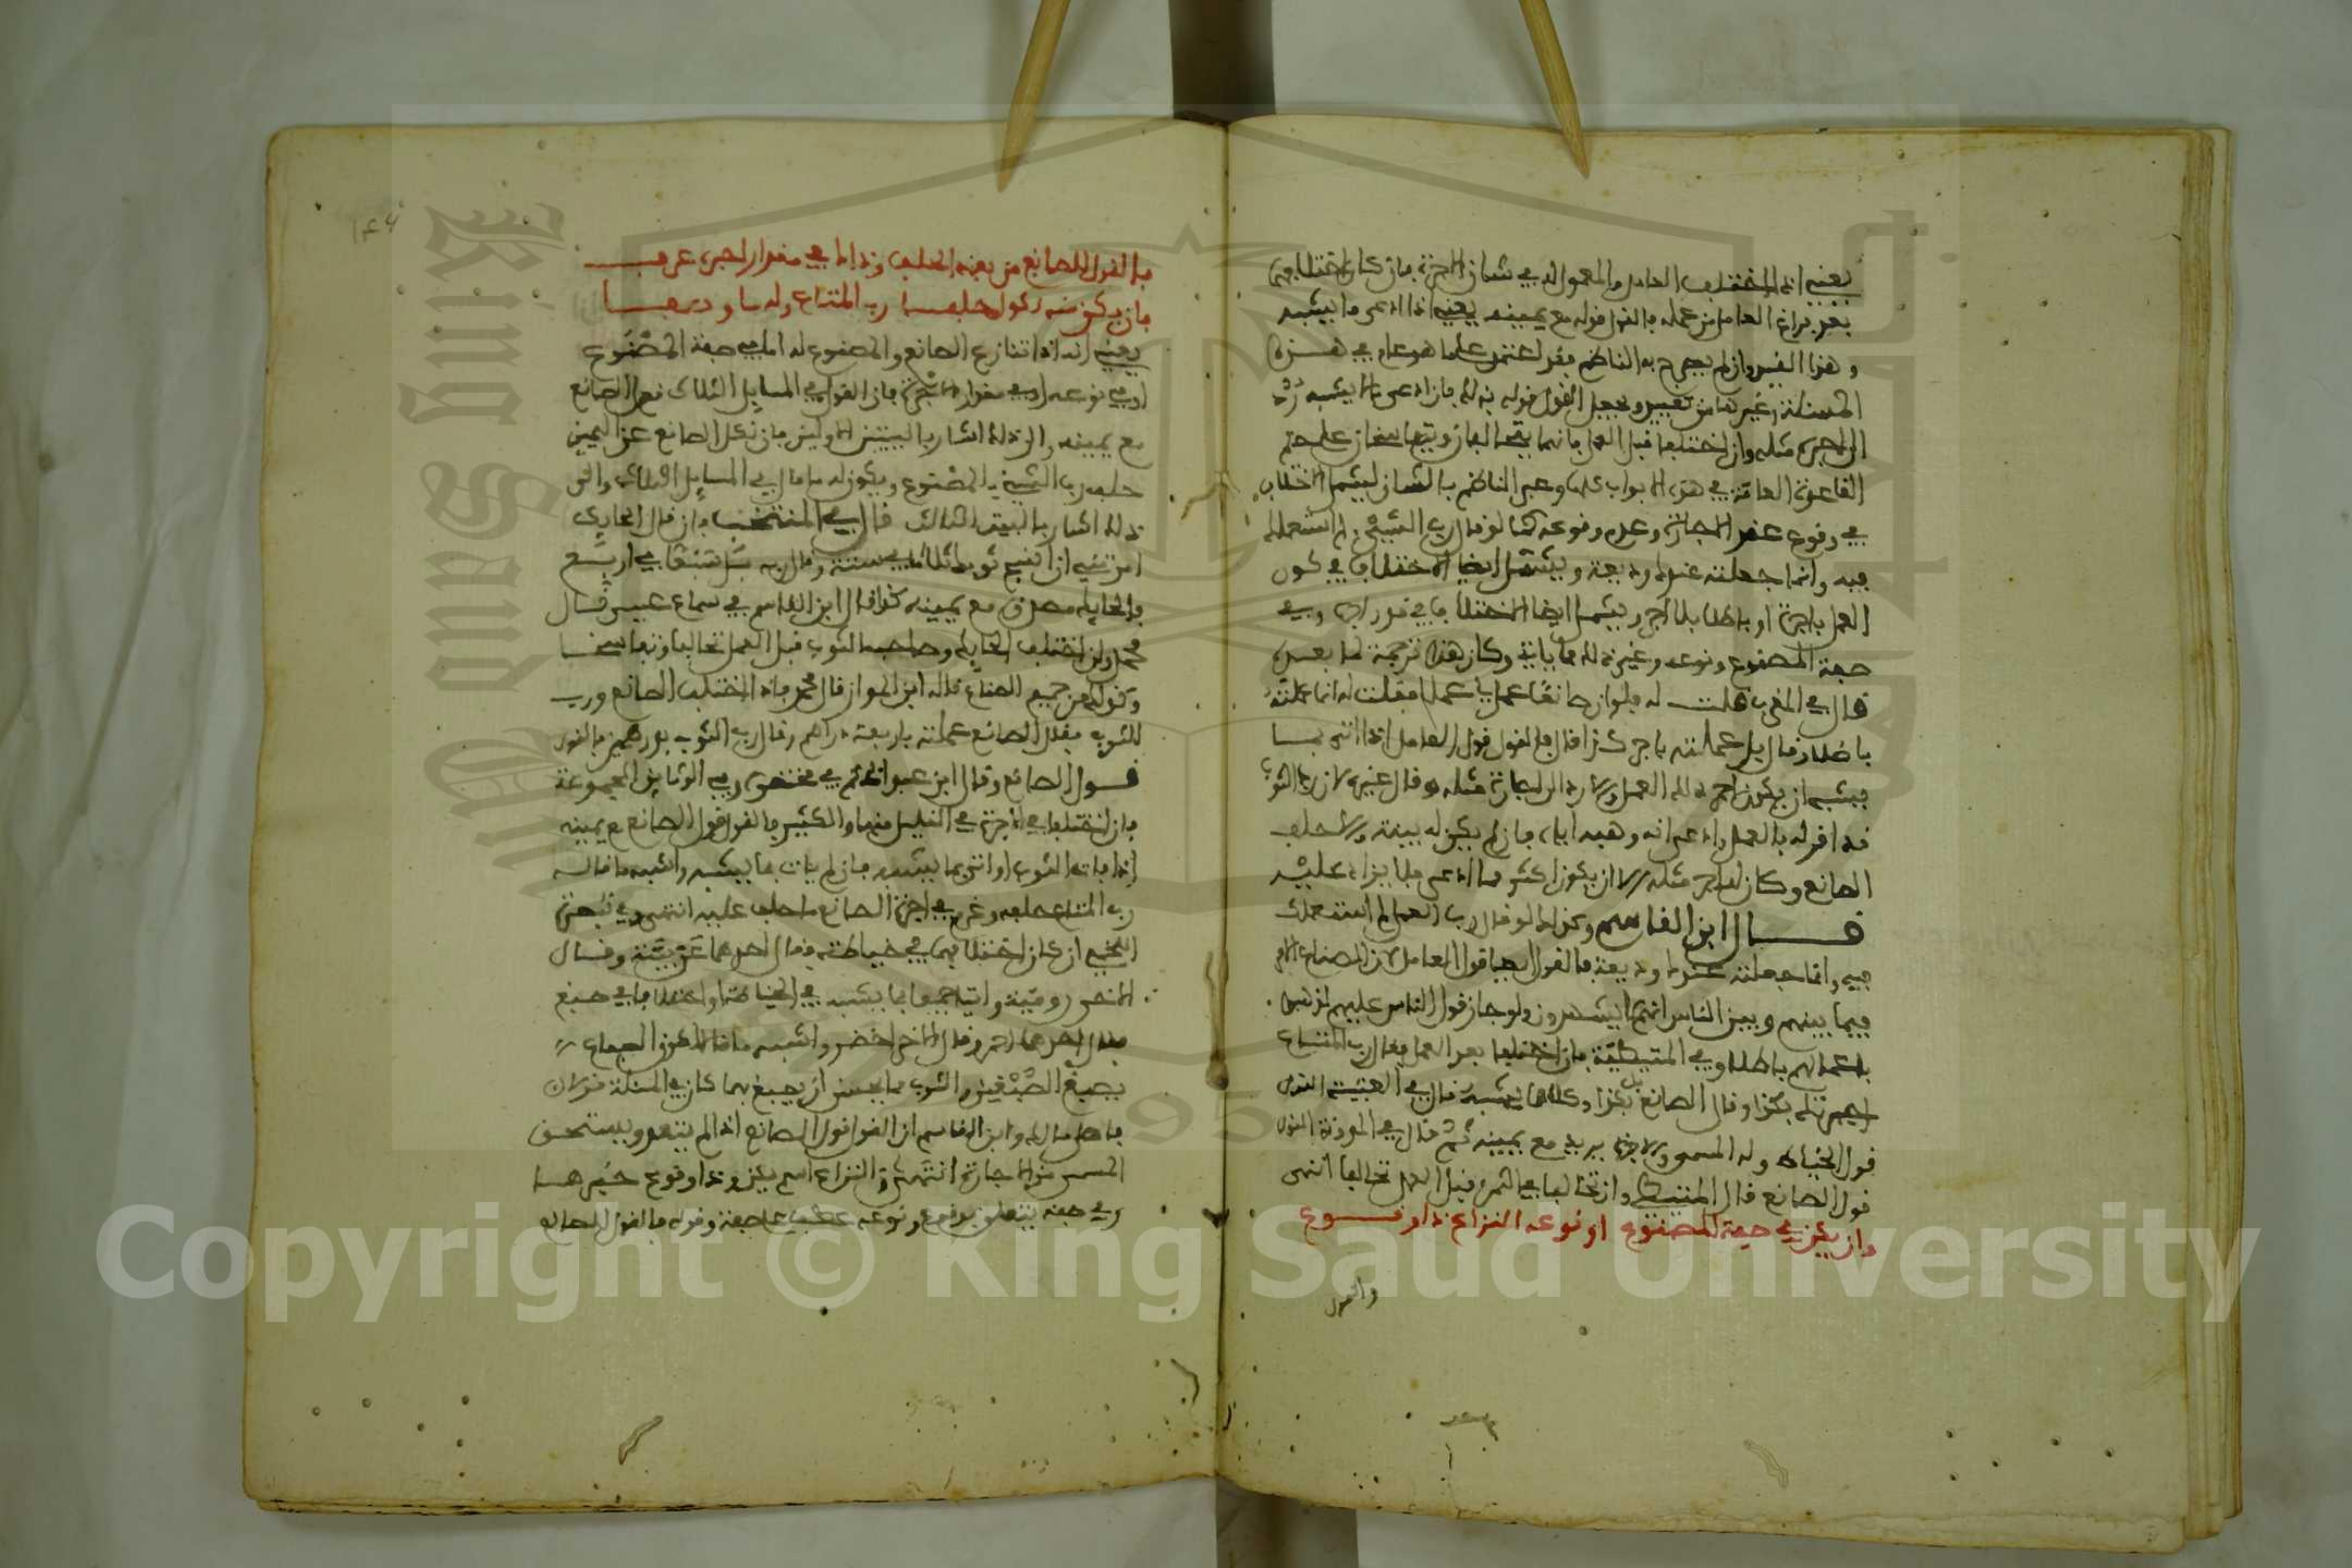 يعني اذا اختلف العامل والمعمول له في شان الاجرة فان كان اختلافهما
بعد فراغ العامل من عمله فالقول قوله مع يمينه يعني اذا ادعى ما يشبه
وهذا القيد وان لم يصرح به الناظم فقد اعتمد على ما هو عام في هذه
المسئلة وغيرها من تقييد وجعل القول قوله بذلك فان ادعى ما لا يشبه رد
الى اجرة مثله وان اختلفا قبل العمل فانهما يتحالفان ويتفاسخان على حكم
القاعدة العامة في هذه الابواب كلها وعبر الناظم بالشان ليشمل الاختلاف
في وقوع عقد الاجارة وعدم وقوعه كما لو قال رب الشيء لم استعملك
فيه وانما جعلته عندك وديعة ويشمل ايضا الاختلاف في كون
العمل باجرة او باطلا بلا اجر ويشمل ايضا الاختلاف في قدر الاجرة وفي
صفة المصنوع ونوعه وغير ذلك مما ياتي وكان هذا ترجمة لما بعده
قال في المقرب قلت له فلو ان صانعا عمل لي عملا فقلت له انما عملته
باطلا وقال بل عملته باجر كذا قال فالقول قول العامل اذا اتى بما
يشبه ان يكون اجر ذلك العمل والا رد الى اجارة مثله وقال غيره لان رب الثوب
قد اقر له بالعمل وادعى انه وهبه اياه فان لم يكن له بينة والا حلف
الصانع وكان له اجر مثله الا ان يكون اكثر مما ادعى فلا يزاد عليه
قال ابن القاسم وكذلك لو قال رب العمل لم استعملك
فيه وانما جعلته عندك وديعة فالقول ايضا قول العامل لان الصناع
فيما بينهم وبين الناس انهم لا يشهدون ولو جاز قول الناس عليهم لذهبت
باعمالهم باطلا وفي المتيطية فان اختلفا بعد العمل فقال رب المتاع
بكذا وقال الصانع بل بكذا وكلاهما يشبه قال في العتبية القول
قول الخياط وله المسمى والاجرة يريد مع يمينه ثم قال في المدونة القول
قول الصانع قال المتيطي وان تخالفا في الثمن قبل العمل تحالفا انتهى
وان يكن في صفة المصنوع او نوعه النزاع ذا وقوع
والقول
فالقول للصانع من بعد الحلف وذا اما في مقدار اجرة عرف
فان يكن منه نكول حلفا رب المتاع وله ما وصفا
يعني انه اذا تنازع الصانع والمصنوع له اما في صفة المصنوع
او في نوعه او في مقدار الاجرة فان القول في المسايل الثلاث قول الصانع
مع يمينه والى ذلك اشار بالبيتين الاولين فان نكل الصانع عن اليمين
حلف رب الشيء المصنوع ويكون له ما قال في المسايل الثلاث والى
ذلك اشار بالبيت الثالث قال في المنتخب وان قال الحايك
امرتني ان انسج ثوبك ثلاثا في ستة وقال ربه بل سبعا في اربع
فالحايك مصدق مع يمينه كذا قال ابن القاسم في سماع عيسى قال
محمد وان اختلف الحايك وصاحب الثوب قبل العمل تحالفا وتفاسخا
وكذلك من جميع الصناع قاله ابن المواز قال محمد واذا اختلف الصانع ورب
الثوب فقال الصانع عملته باربعة دراهم وقال رب الثوب بدرهمين فالقول
قول الصانع وقال ابن عبد الحكم في مختصره وفي الوثايق المجموعة
فان اختلفا في الاجرة في القليل منها والكثير فالقول قول الصانع مع يمينه
اذا فات الثوب او اتى بما يشبه فان لم يات بما يشبه واشبه ما قاله
رب المتاع حلف وغرم في اجرة الصانع ما حلف عليه انتهى وفي تبصرة
اللخمي ان كان اختلافهما في خياطته فقال احدهما عربية وقال
الاخر رومية واتيا جميعا بما يشبه في الخياطة او اختلفا في صبغ
فقال احدهما احمر وقال الاخر اخضر واشبه ما قالاه كون الصباغ
يصبغ الصبغين والثوب مما يحسن ان يصبغ بهما كان في المسئلة قولان
فاصل مالك وابن القاسم ان القول قول الصانع انه لم يتعد ويستحق
المسمى من الاجارة انتهى والنزاع اسم يكن وذا وقوع خبرها
وفي صفة يتعلق بوقوع ونوعه عطف على صفة وقوله فالقول للصانع